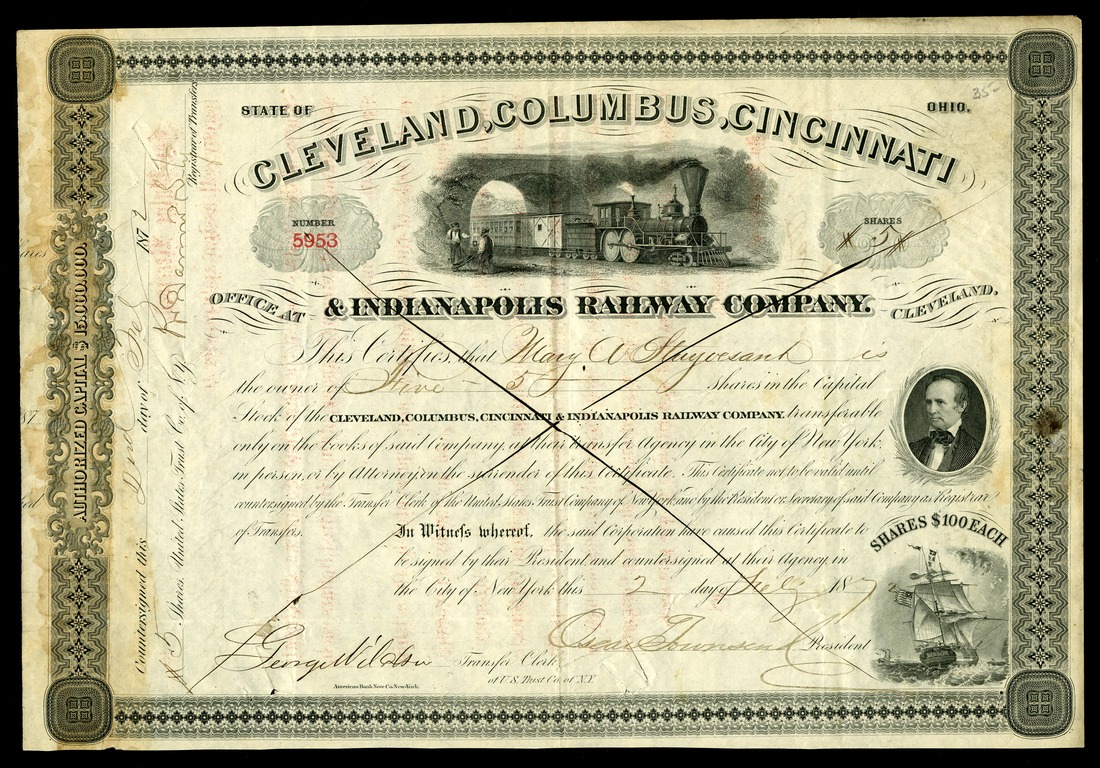 STATE OF
OHIO.
35-
CLEVELAND, COLUMBUS, CINCINNATI
NUMBER
5953
SHARES
5
OFFICE AT
& INDIANAPOLIS RAILWAY COMPANY.
CLEVELAND,
This Certifies, that Mary A Stuyvesant is
the owner of Five - 5 shares in the Capital
Stock of the CLEVELAND, COLUMBUS, CINCINNATI & INDIANAPOLIS RAILWAY COMPANY. transferable
only on the books of said Company, at their transfer Agency in the City of New York,
in person, or by Attorney, on the surrender of this Certificate. This Certificate not to be valid until
countersigned by the Transfer Clerk of the United States Trust Company of New York, and by the President or Secretary of said Company as Registrar
of Transfers.
In Witness whereof, the said Corporation have caused this Certificate to
be signed by their President, and countersigned at their Agency, in
the City of New York this 2 day of Feby 187
SHARES $100 EACH
George Wilson Transfer Clerk
of U.S. Trust Co. of N.Y.
Oscar Townsend President
American Bank Note Co. New York.
AUTHORIZED CAPITAL $15,000,000.
Countersigned this 2nd day of Feb 1872
5 Shares. United States Trust Co. of N.Y.
Registrar of Transfers